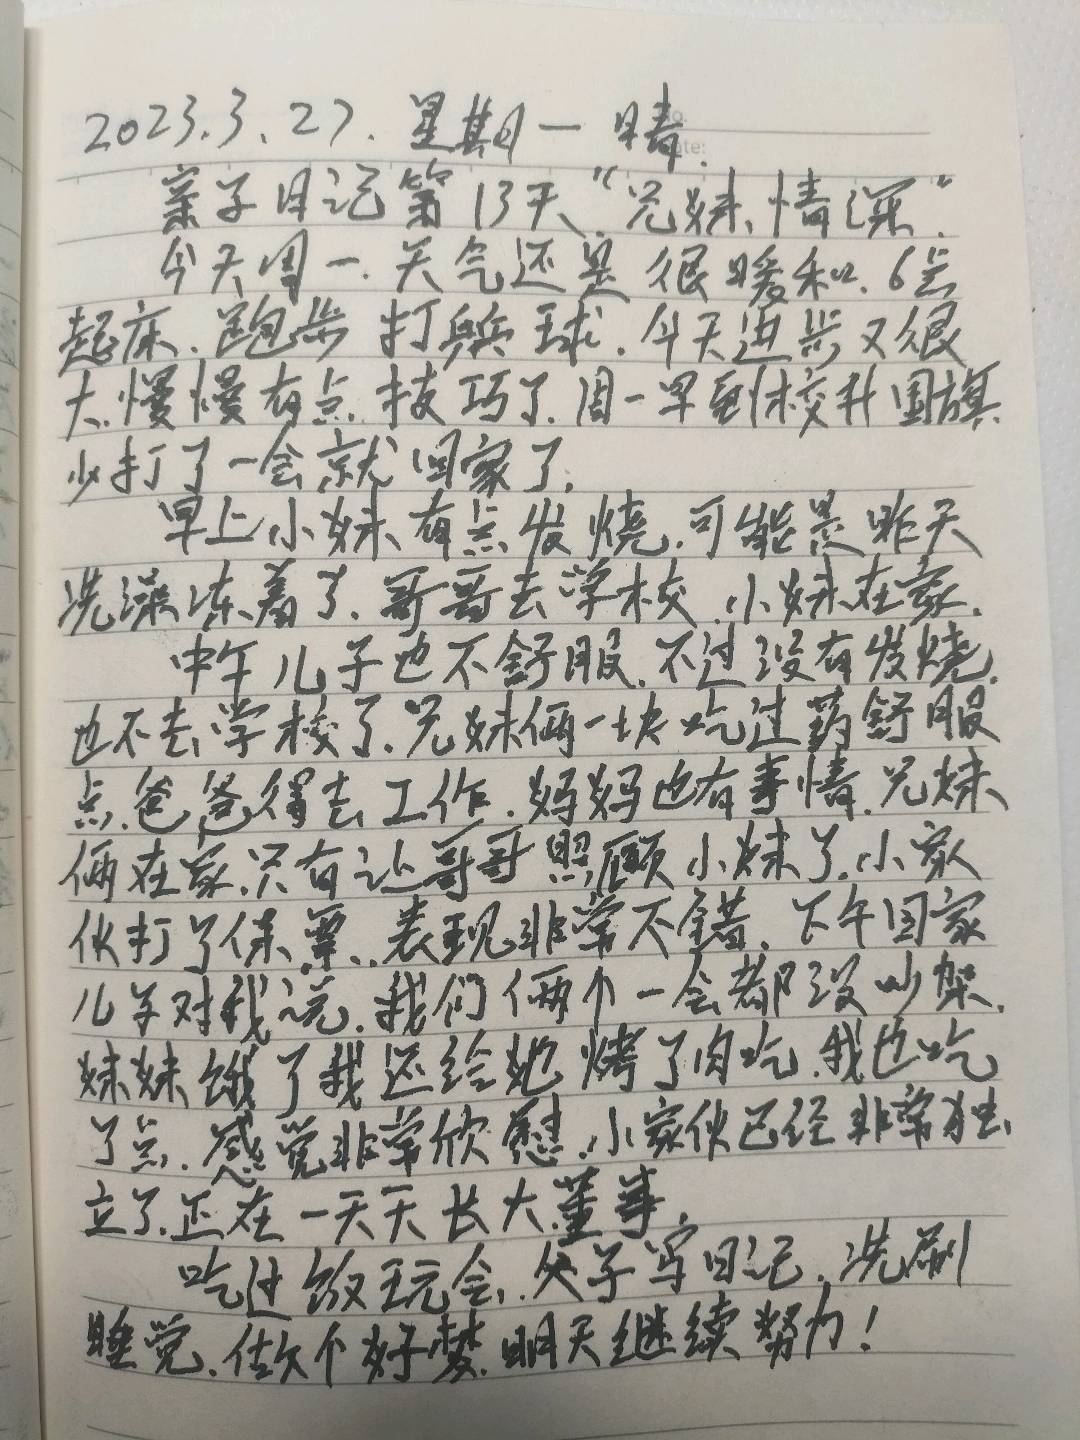 2023.3.27.星期一 晴.
亲子日记第13天“兄妹情深”.
今天周一.天气还是很暖和.6点
起床.跑步打兵球.今天进步又很
大.慢慢有点技巧了.周一早到校升国旗.
少打了一会就回家了.
早上小妹有点发烧.可能是昨天
洗澡冻着了.哥哥去学校.小妹在家.
中午儿子也不舒服.不过没有发烧.
也不去学校了.兄妹俩一块吃过药舒服
点.爸爸得去工作.妈妈也有事情.兄妹
俩在家.只有让哥哥照顾小妹了.小家
伙打了保票.表现非常不错.下午回家
儿子对我说.我们俩个一会都没吵架.
妹妹饿了我还给她烤了肉吃.我也吃
了点.感觉非常欣慰.小家伙已经非常独
立了.正在一天天长大.董事.
吃过饭玩会.父子写日记.洗刷
睡觉.做个好梦.明天继续努力!